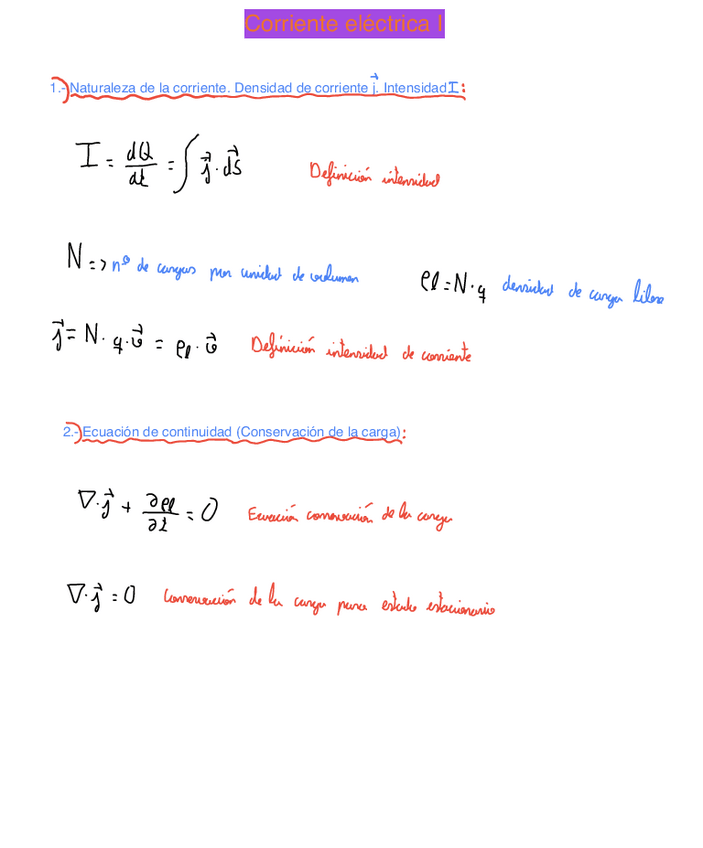 Corriente eléctrica I
1.-) Naturaleza de la corriente. Densidad de corriente j⃗. Intensidad I:
I = dQ/dt = ∫ j⃗ · ds⃗ Definición intensidad
N => nº de cargas por unidad de volumen ρl = N · q densidad de carga libre
j⃗ = N · q · v⃗ = ρl · v⃗ Definición intensidad de corriente
2.-) Ecuación de continuidad (Conservación de la carga):
∇ · j⃗ + ∂ρl/∂t = 0 Ecuación conservación de la carga
∇ · j⃗ = 0 Conservación de la carga para estado estacionario